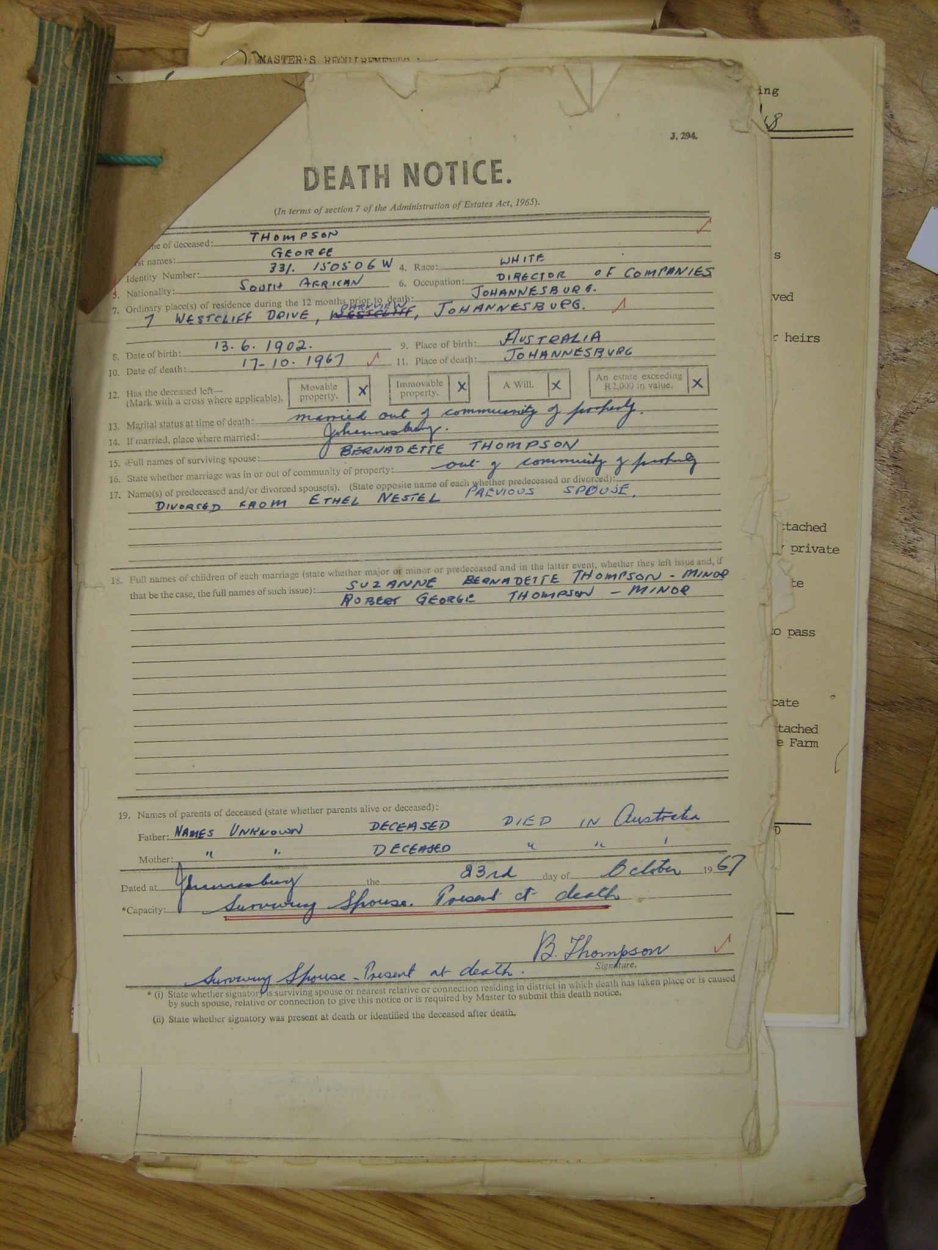 MASTER'S REQUIREMENTS
ing
J. 294.
DEATH NOTICE.
(In terms of section 7 of the Administration of Estates Act, 1965).
me of deceased: THOMPSON
st names: GEORGE
Identity Number: 331. 150506 W 4. Race: WHITE
5. Nationality: SOUTH AFRICAN 6. Occupation: DIRECTOR OF COMPANIES
JOHANNESBURG.
7. Ordinary place(s) of residence during the 12 months prior to death:
7 WESTCLIFF DRIVE, PARKVIEW, JOHANNESBURG.
8. Date of birth: 13.6.1902. 9. Place of birth: AUSTRALIA
10. Date of death: 17-10-1967 11. Place of death: JOHANNESBURG
12. Has the deceased left— (Mark with a cross where applicable). Movable property. X Immovable property. X A Will. X An estate exceeding R2,000 in value. X
13. Marital status at time of death: married out of community of property.
14. If married, place where married: Johannesburg.
15. Full names of surviving spouse: BERNADETTE THOMPSON
16. State whether marriage was in or out of community of property: out of community of property
17. Name(s) of predeceased and/or divorced spouse(s). (State opposite name of each whether predeceased or divorced):
DIVORCED FROM ETHEL NESTEL PREVIOUS SPOUSE.
18. Full names of children of each marriage (state whether major or minor or predeceased and in the latter event, whether they left issue and, if
that be the case, the full names of such issue): SUZANNE BERNADETTE THOMPSON - MINOR
ROBERT GEORGE THOMPSON - MINOR
19. Names of parents of deceased (state whether parents alive or deceased):
Father: NAMES UNKNOWN DECEASED DIED IN Australia
Mother: " " DECEASED " " "
Dated at Johannesburg the 23rd day of October 1967
*Capacity: Surviving Spouse. Present at death
B. Thompson
Signature.
Surviving Spouse - Present at death.
* (i) State whether signatory is surviving spouse or nearest relative or connection residing in district in which death has taken place or is caused
by such spouse, relative or connection to give this notice or is required by Master to submit this death notice.
(ii) State whether signatory was present at death or identified the deceased after death.
s
ved
r heirs
ttached
private
te
to pass
cate
tached
e Farm